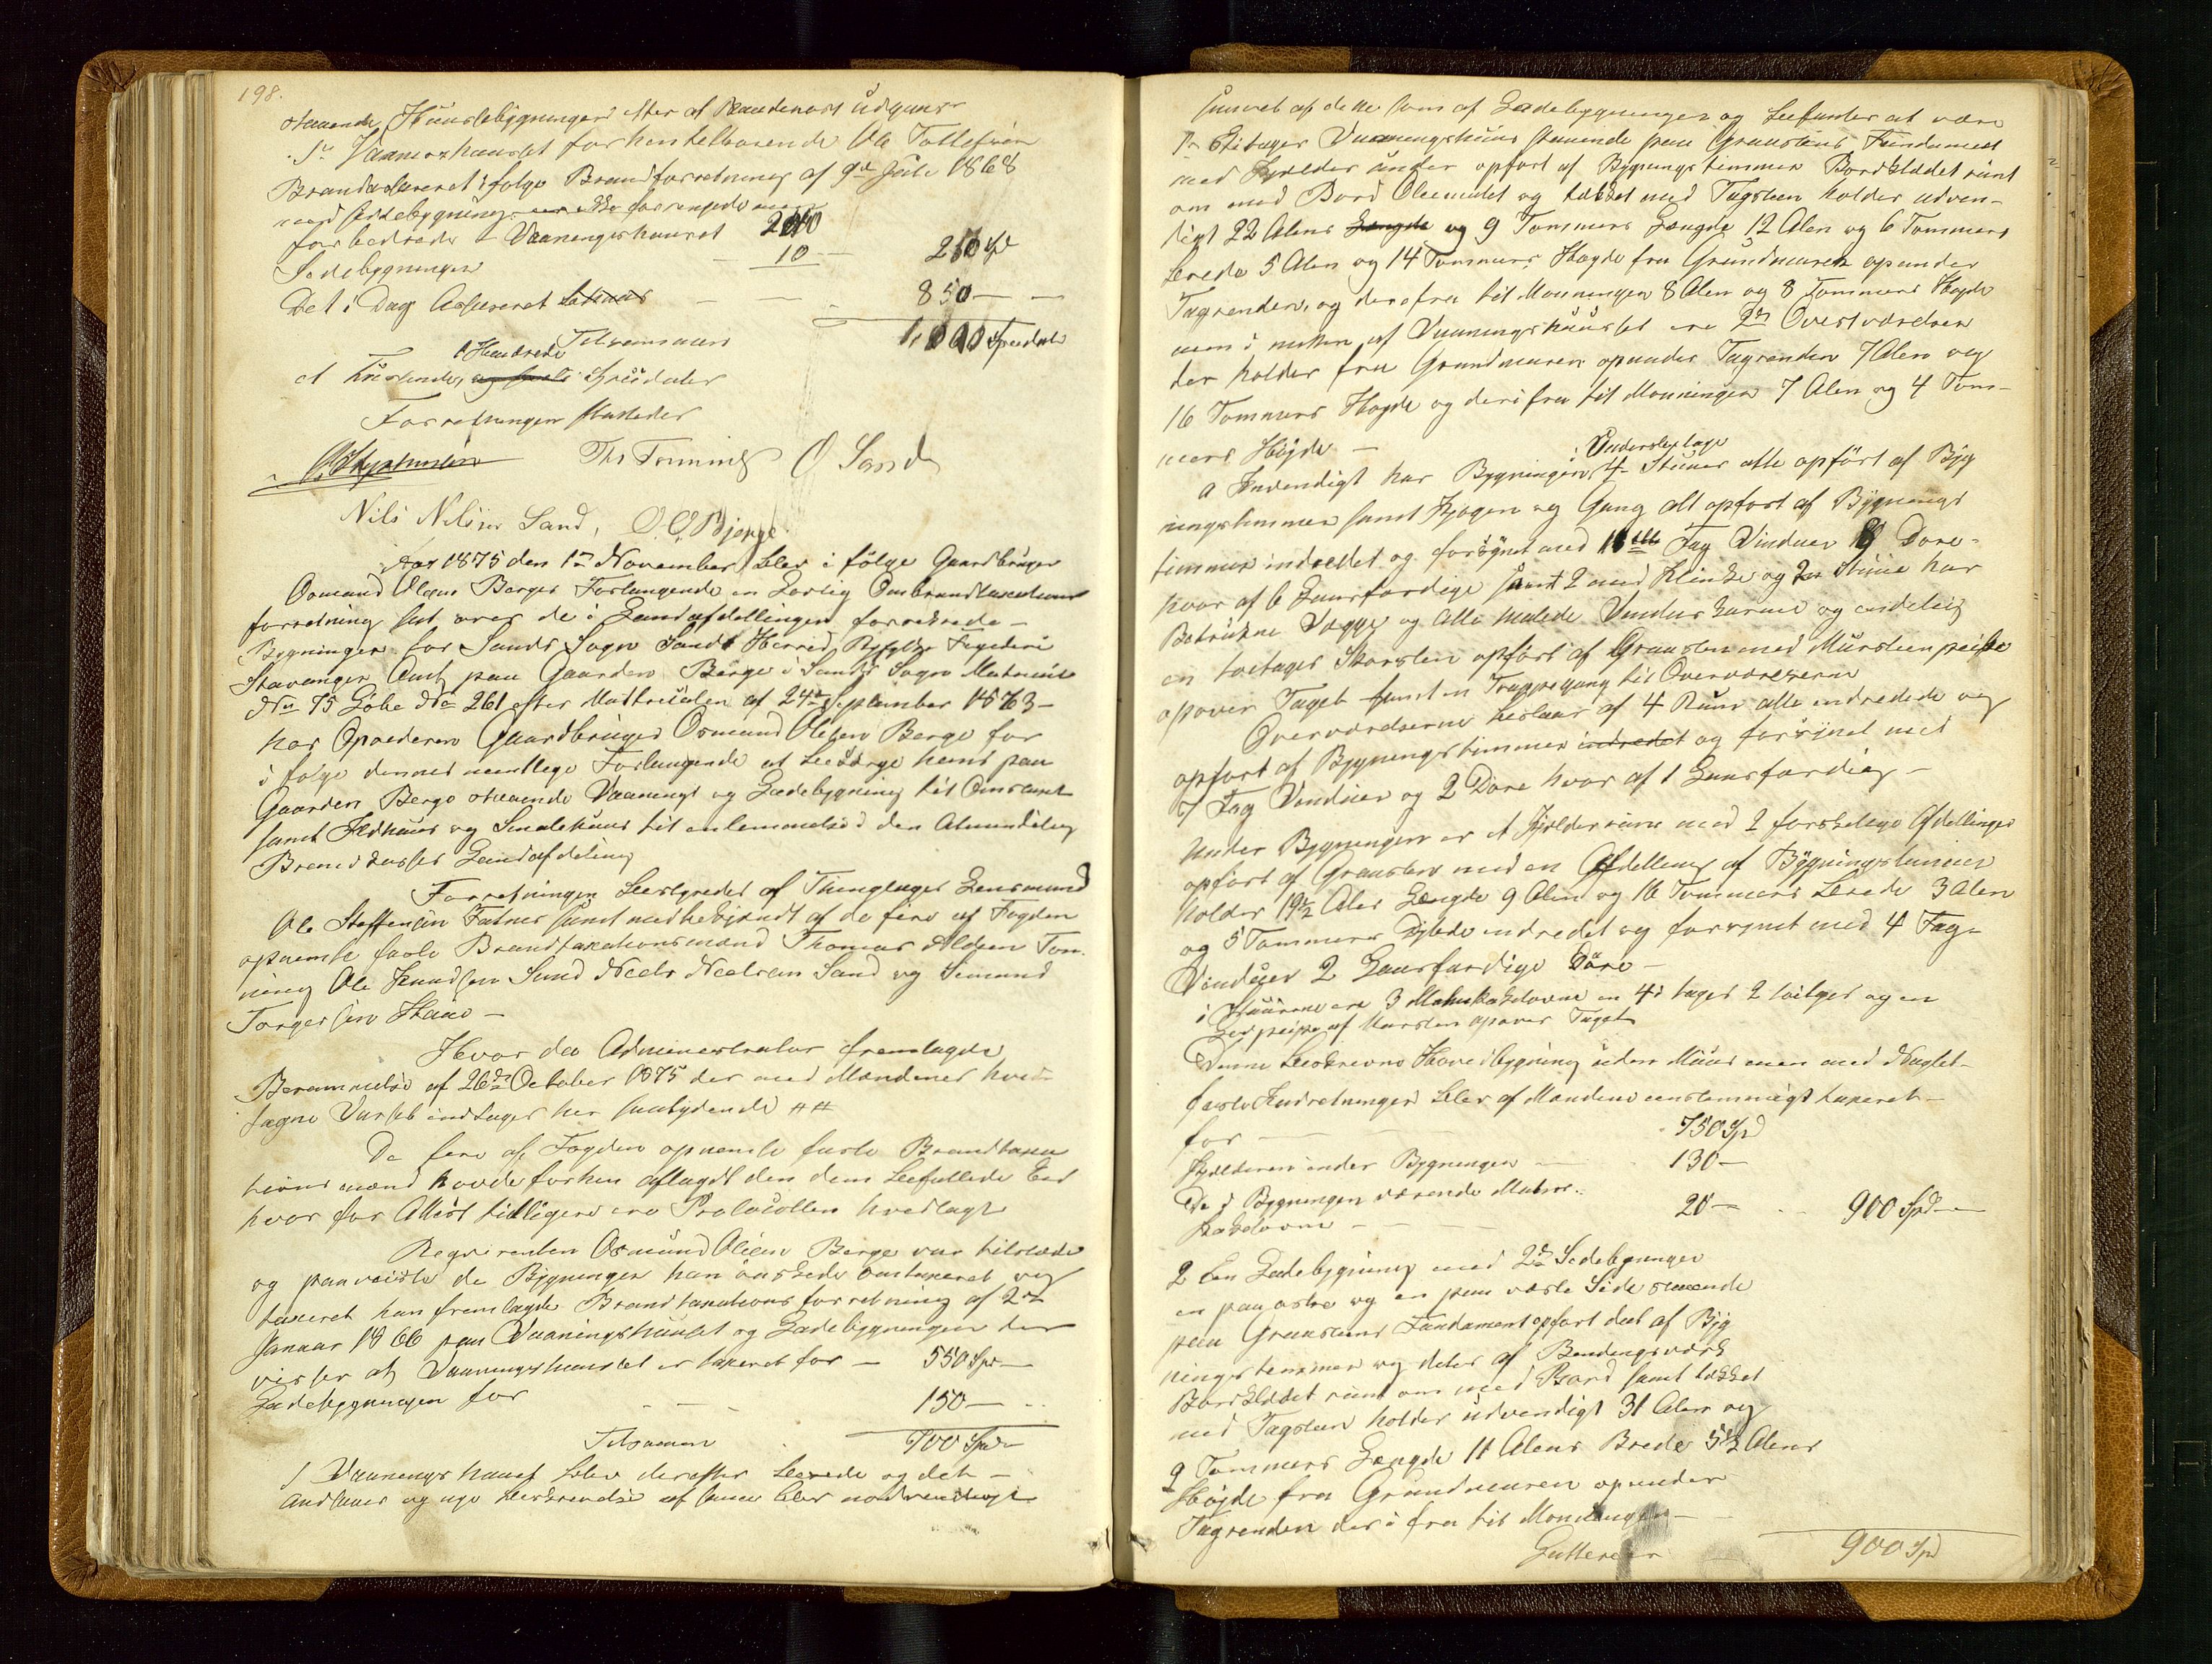 198.
staaende Huusbebygninger efter af Brandenest udgaar
1te Vaaningshuuset forhen tilhørende Ole Tollefsen
Brandassureret i følge Brandforretning af 9de Juli 1868
med Ladebygning
forbedrede Vaaningshuuset 240
Ladebygningen 10 — 250 Spd
Det i Dag Assureret — — 850 — —
Tilsammen 1,000 Speciedaler
et Tusinde, Hundrede Speciedaler
Forretningen sluttedes
Ths Fonning O Sand
Nils Nilsen Sand, O. O. Bjerge
Aar 1875 den 1te November blev i følge Gaardbruger
Osmund Olsens Berges Forlangende en Lovlig Ombrandtaxations
forretning sat over de i Landafdellingen forsikrede
Bygninger for Sands Sogn Sands Herred Ryfylke Fogderi
Stavanger Amt paa Gaarden Berge i Sands Sogn Matricul
No 75 Løbe No 261 efter Mattriculen af 24de September 1863 —
har Opsidderen Gaardbruger Osmund Olsen Berge for
i følge dennes mundtlige Forlangende at besørge hans paa
Gaarden Berge staaende Vaanings og Ladebygning til Omtaxt
samt Ildhuus og Smalehuus til indlemmelse i den Almindelig
Brandkasses Landafdeling
Forretningen bestyredes af Thinglaget Lensmand
Ole Steffensen Fatnes samt medbetjendt af de fire af Fogden
opnevnte faste Brandtaxationsmænd Thomas Olsen Fon-
ning Ole Knudsen Sand Niels Nielsen Sand og Simund
Torgersen Haae —
Hvor da Administrator fremlagde
Berammelse af 26de October 1875 der med Mændenes hved
fægne Varsel indtages her saalydende ##
De fire af Fogden opnevnte faste Brandtaxa
tions mænd havde forhen aflagdt den dem befallede Eed
hvor for Attest tidligere ere Protocollen hvedlagt
Reqvirenten Osmund Olsen Berge var tilstede
og paaviiste de Bygninger han ønskede omtaxeret og
taxeret han fremlagde Brandtaxations forretning af 2de
Januar 1866 paa Vaaningshuuset og Ladebygningen der
viser at Vaaningshuuset er taxeret for — 550 Spd —
Ladebygningen for — — 150 — ..
Tilsammen 700 Spd
1 Vaanings huuset blev derefter besede og det —
andsees og nye beskrevelse af samme blev nødvendigt
samret af dette som af Ladebygningen og befantes at være
1te Et tvitages Vaaningshuus staaende paa Graasteins Fundament
med Kjelder under opført af Bygnings tømmer Bordklædet rundt
om med Bord Oliemalet og tækket med Tagsteen holder udven-
digt 22 Alens Længde og 9 Tommers Længde 12 Alen og 6 Tommers
brede 5 Alen og 14 Tommers Høgde fra Grundmuren opunder
Tagrenden, og derefra til Mønningen 8 Alen og 8 Tommers Høgde
men i midten af Vaaningshuuset ere 2de Overværelser
der holder fra Grundmuren opunder Tagrenden 7 Alen og
16 Tommers Høgde og derifra til Mønningen 7 Alen og 4 Tom-
mers Højde —
a Indvendigt har Bygningen i Understetage 4 Stuer alle opført af Byg
ningstømmer samt Kjøgen og Gang alt opført af Bygnings
tømmer indredet og forsynet med 11 Fag Vinduer 8 Døre —
hvor af 6 Laasfærdige samt 2 med Klinke og 2de Stuue har
Betrukne Vægge og alle malede Vindus karme og endelig
en toetages Skorsten opført af Graasten med Mursteen peibe
opover Taget samt en Trappegang til Overværelserne
Overværelserne bestaar af 4 Rum alle indredede og
opført af Bygningstømmer indredet og forsynet med
7 Fag Vinduer og 2 Døre hvor af 1 Laasfærdig —
Under Bygningen er et Kjelderrum med 2 forskellige Afdellinger
opført af Graasten med en Afdelling af Bygningstømmer
holder 19½ Alen Længde 9 Alen og 16 Tommers brede 3 Alen
og 5 Tommers Dybde indredet og forsynet med 4 Fag —
Vinduer 2 Laasfærdige Døre —
i Stuerne ere 3 Malmkakelovne en 4re tages 2 toetages og en
peipe af Mursten opover Taget
Denne beskrevne Hovedbygning uden Muur men med Naglet-
faste Indretninger blev af Mændene eenstemmigt taxeret —
for — — 750 Spd
Kjelderen under Bygningen — 130 —
De i Bygningen værende Malm
kakelovne — — — 20 — .. 900 Spd —
2 En Ladebygning med 2de Sidebygninger
en paa østre og en paa vestre Side staaende
paa Graasteins Fundament opført deel af Byg
ningstømmer og deles af Bendingsværk
Bordklædet rundt om med Bord samt tækket
med Tagsteen holder udvendigt 31 Alen og
9 Tommers Længde 11 Alens Brede 5½ Alens
Højde fra Grundmuren opunder
Tagrenden der i fra til Mønningen —
Latteren 900 Spd